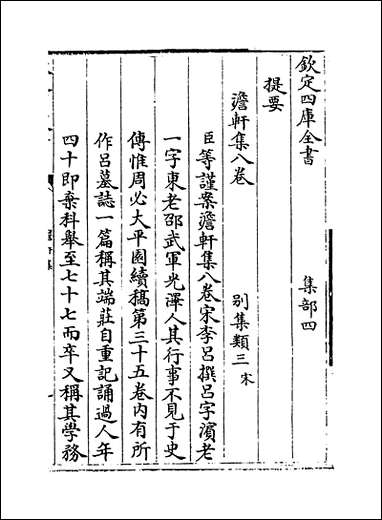 欽定四庫全書 集部四
提要
澹軒集八卷 别集類三 宋
臣等謹案澹軒集八卷宋李呂撰呂字濱老
一字東老邵武軍光澤人其行事不見于史
傳惟周必大平園續稿第三十五卷内有所
作呂墓誌一篇稱其端莊自重記誦過人年
四十即棄科舉至七十七而卒又稱其學務